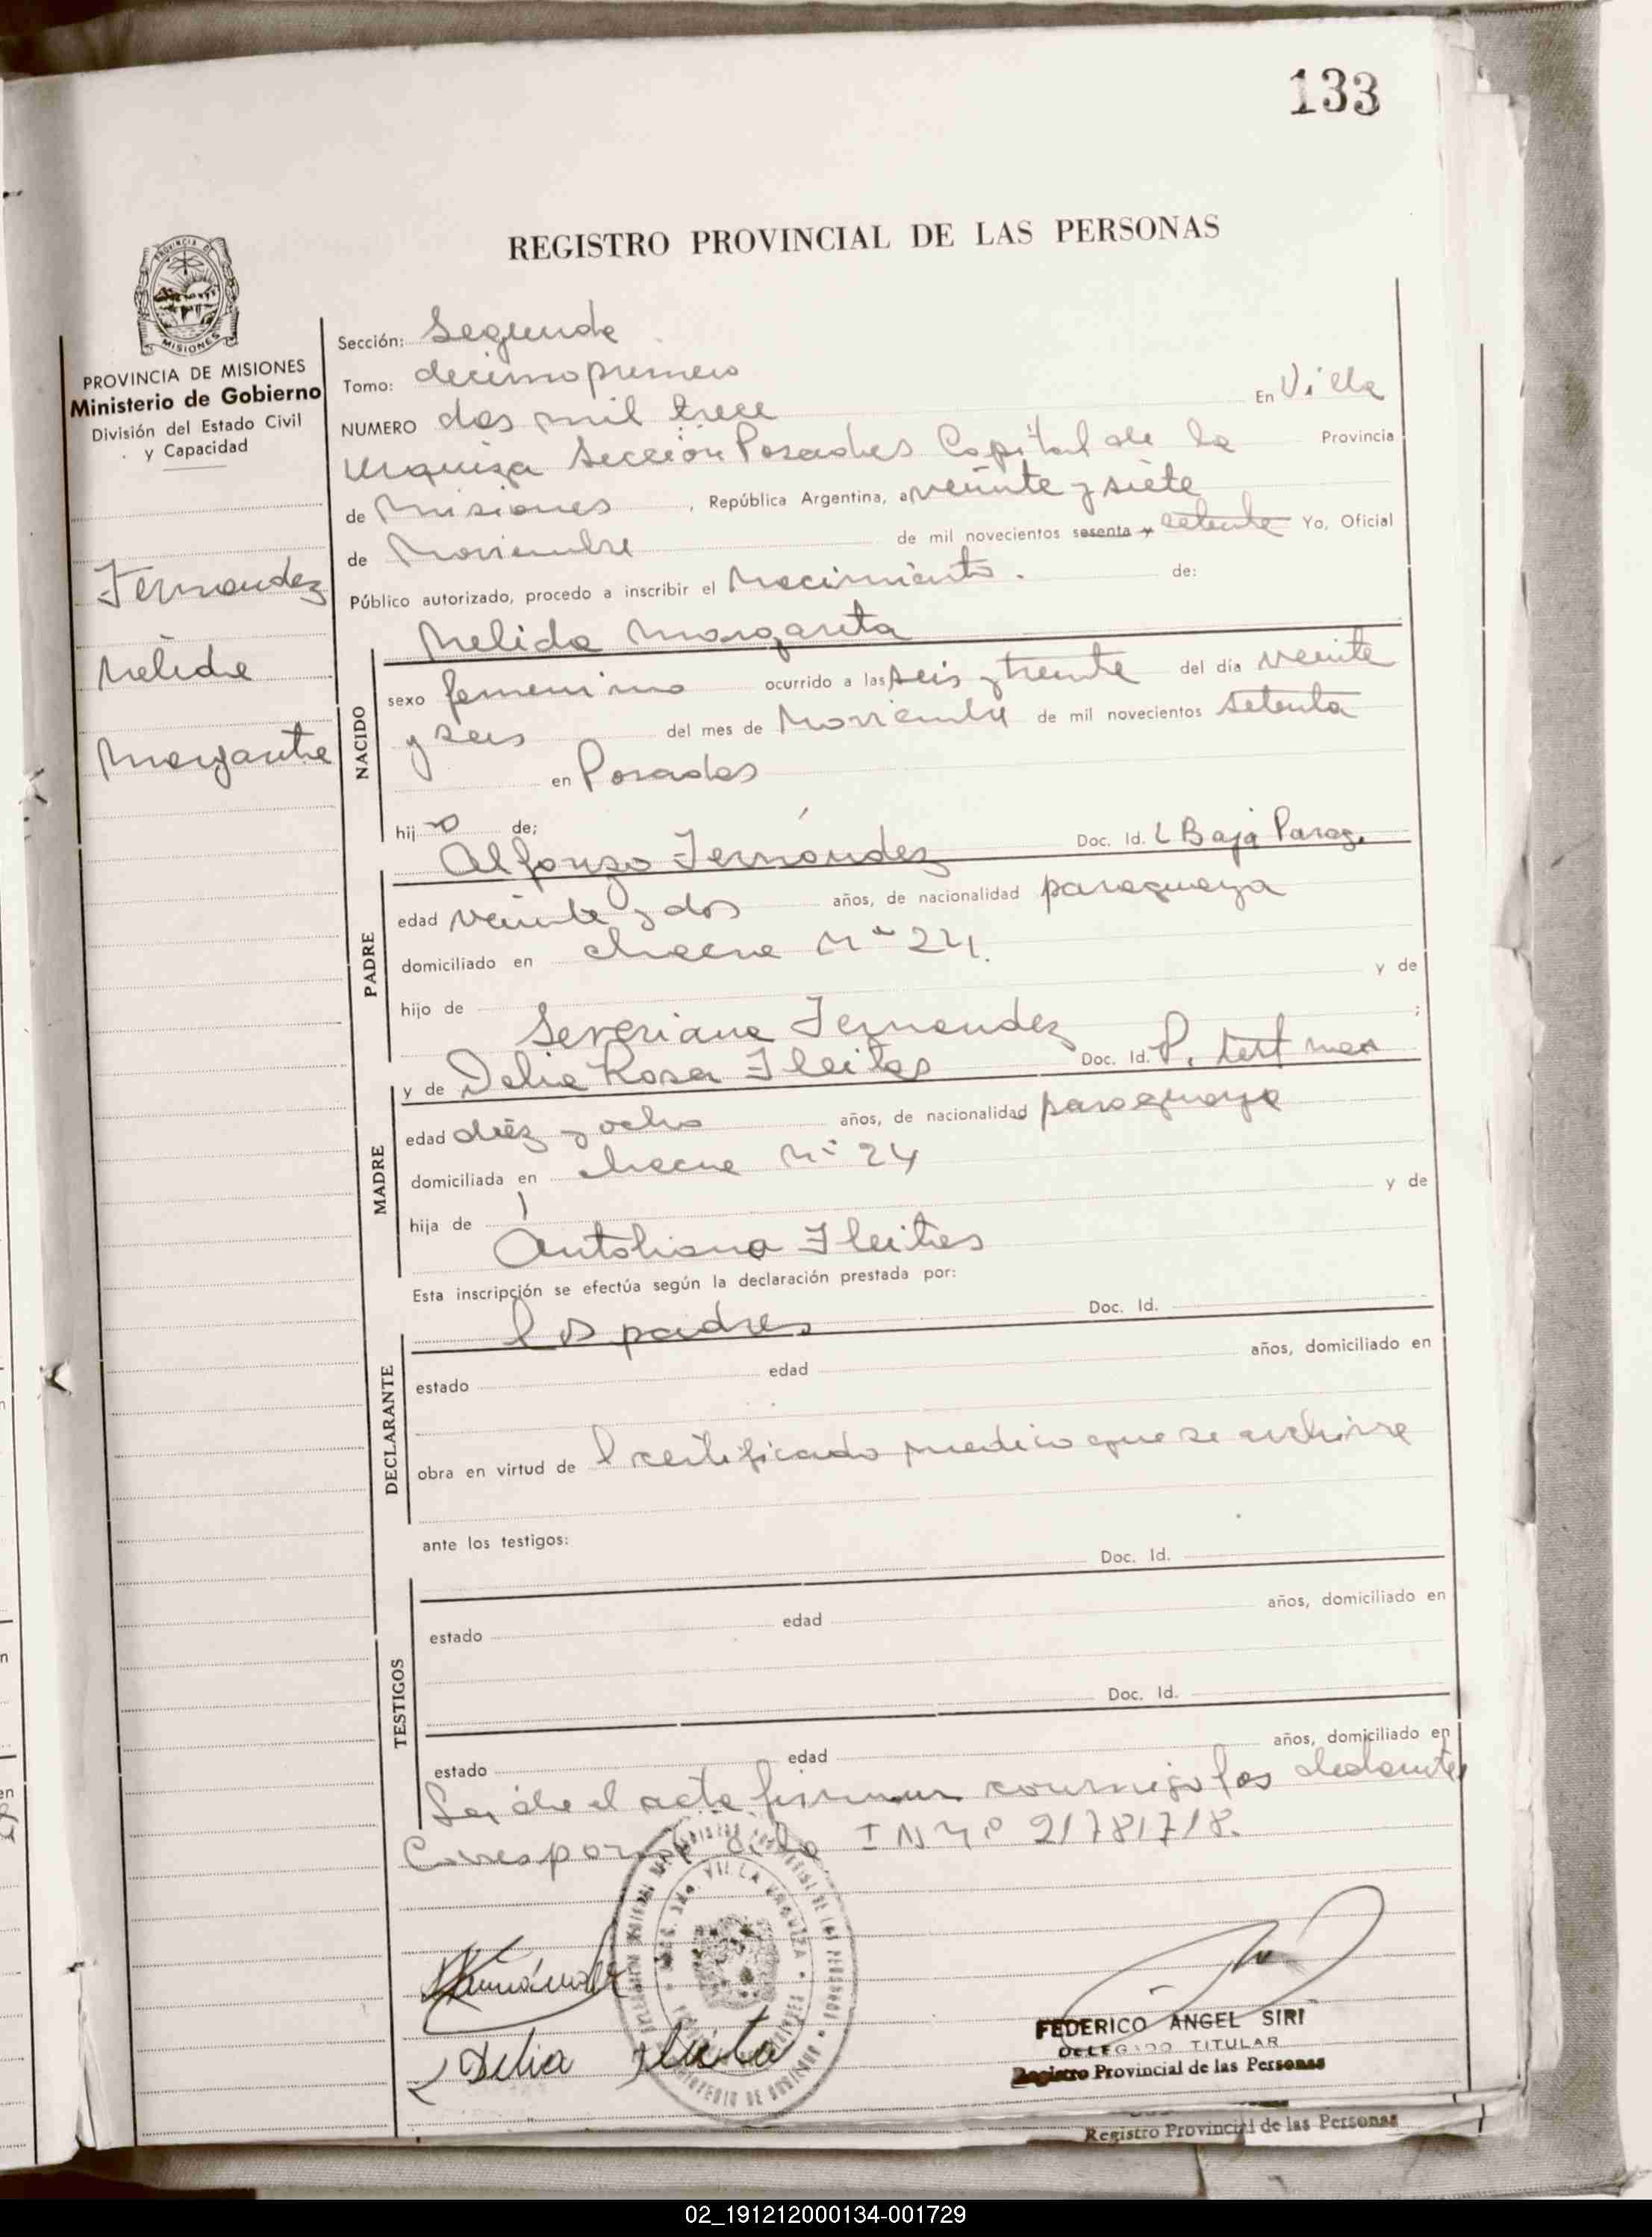 133
REGISTRO PROVINCIAL DE LAS PERSONAS
PROVINCIA DE MISIONES
MISIONES
PROVINCIA DE MISIONES
Ministerio de Gobierno
División del Estado Civil
y Capacidad
Fernandez
Nelida
Margarita
Sección: Segunda
Tomo: decimo primero
NUMERO dos mil trece En Villa
Urquiza Sección Posadas Capital de la Provincia
de Misiones, República Argentina, a veinte y siete
de Noviembre de mil novecientos sesenta y setenta Yo, Oficial
Público autorizado, procedo a inscribir el Nacimiento. de:
NACIDO
Nelida Margarita
sexo femenino ocurrido a las seis y treinta del día veinte
y seis del mes de Noviembre de mil novecientos setenta
en Posadas
hij a de:
PADRE
Alfonzo Fernández Doc. Id. L Baja Parag.
edad veinte y dos años, de nacionalidad paraguaya
domiciliado en chacra Nº 24.
hijo de y de
Severiana Fernandez ;
MADRE
y de Delia Rosa Fleitas Doc. Id. P.
edad diez y ocho años, de nacionalidad paraguaya
domiciliada en chacra Nº 24
hija de y de
Antoliana Fleitas
Esta inscripción se efectúa según la declaración prestada por:
DECLARANTE
los padres Doc. Id.
estado edad años, domiciliado en
obra en virtud de l certificado medico que se archiva
ante los testigos:
TESTIGOS
Doc. Id.
estado edad años, domiciliado en
Doc. Id.
estado edad años, domiciliado en
Leida el acta firman conmigo los
Corresponde
VILLA URQUIZA
Fernández
Delia Fleita
FEDERICO ANGEL SIRI
DELEGADO TITULAR
Registro Provincial de las Personas
Registro Provincial de las Personas
02_191212000134-001729